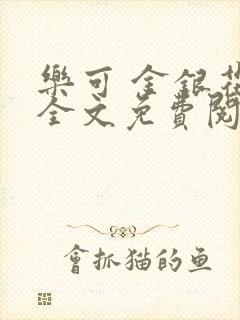 樂可 金銀花
全文免費閱
會抓猫的鱼